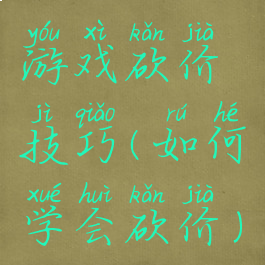 yóu xì kǎn jià
游戏砍价
jì qiǎo rú hé
技巧(如何
xué huì kǎn jià
学会砍价)